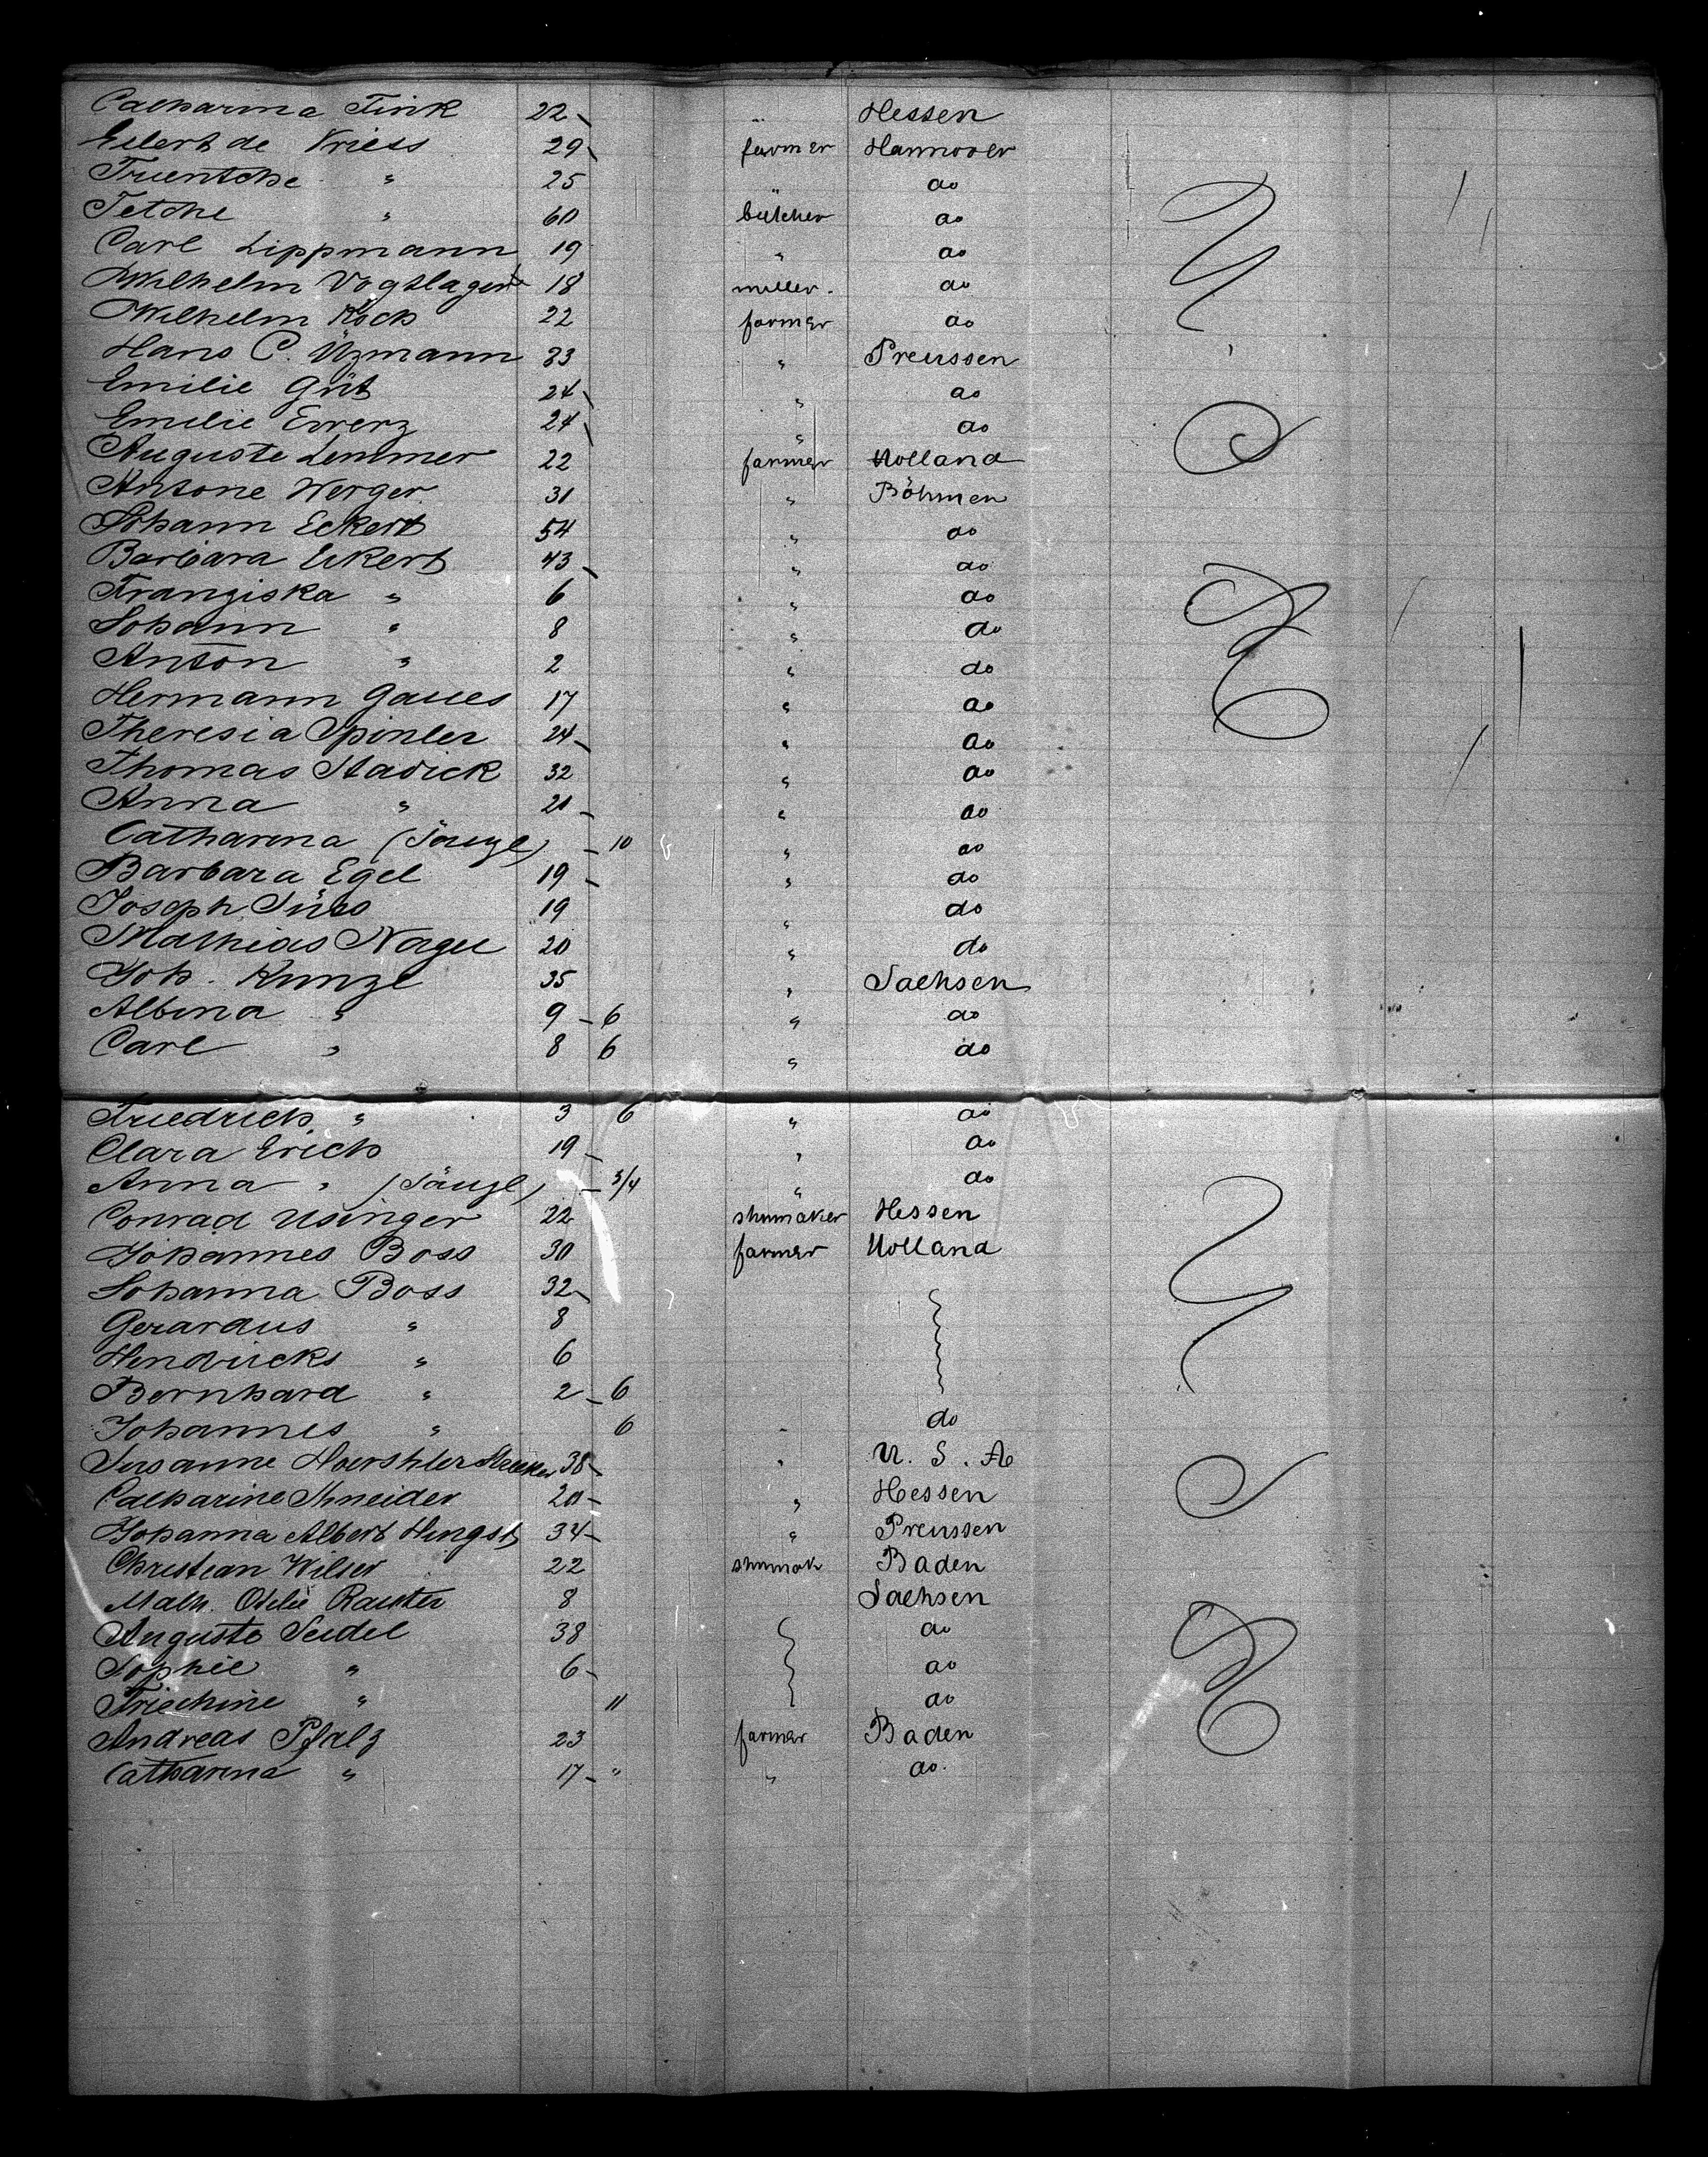 Catharina Fink 22 " Hessen
Eilert de Vriess 29 farmer Hannover
Truentche " 25 " do
Tetche " 60 butcher do
Carl Lippmann 19 " do
Wilhelm Vogtlager 18 miller. do
Wilhelm Koch 22 farmer do
Hans C. Uzmann 33 " Preussen
Emilie Grüt 24 " do
Emilie Evverz 24 " do
Auguste Lemmer 22 farmer Holland
Antone Werger 31 " Böhmen
Johann Eckert 54 " do
Barbara Eckert 43 " do
Franziska " 6 " do
Johann " 8 " do
Anton " 2 " do
Hermann Gaues 17 " do
Theresia Spinler 24 " do
Thomas Stadick 32 " do
Anna " 21 " do
Catharina (Säugl) 10 " do
Barbara Egel 19 " do
Joseph Süss 19 " do
Mathias Nagel 20 " do
Joh. Kunze 35 " Sachsen
Albina " 9 6 " do
Carl " 8 6 " do
Friedrich " 3 6 " do
Clara Erich 19 " do
Anna " (Säugl) 3/4 " do
Conrad Usinger 22 shumaker Hessen
Johannes Boss 30 farmer Holland
Johanna Boss 32
Gerardus " 8
Hendricks " 6
Bernhard " 2 6
Johannes " 6 " do
Susanne Hoershler 38 " U. S. A
Catharine Shneider 20 " Hessen
Johanna Albert Hingst 34 " Preussen
Christian Wilser 22 shumak Baden
Math. Otilie Rauter 8 Sachsen
Auguste Seidel 38 do
Sophie " 6 do
Friechine " 11 do
Andreas Pfalz 23 farmer Baden
Catharina " 17 " " do.